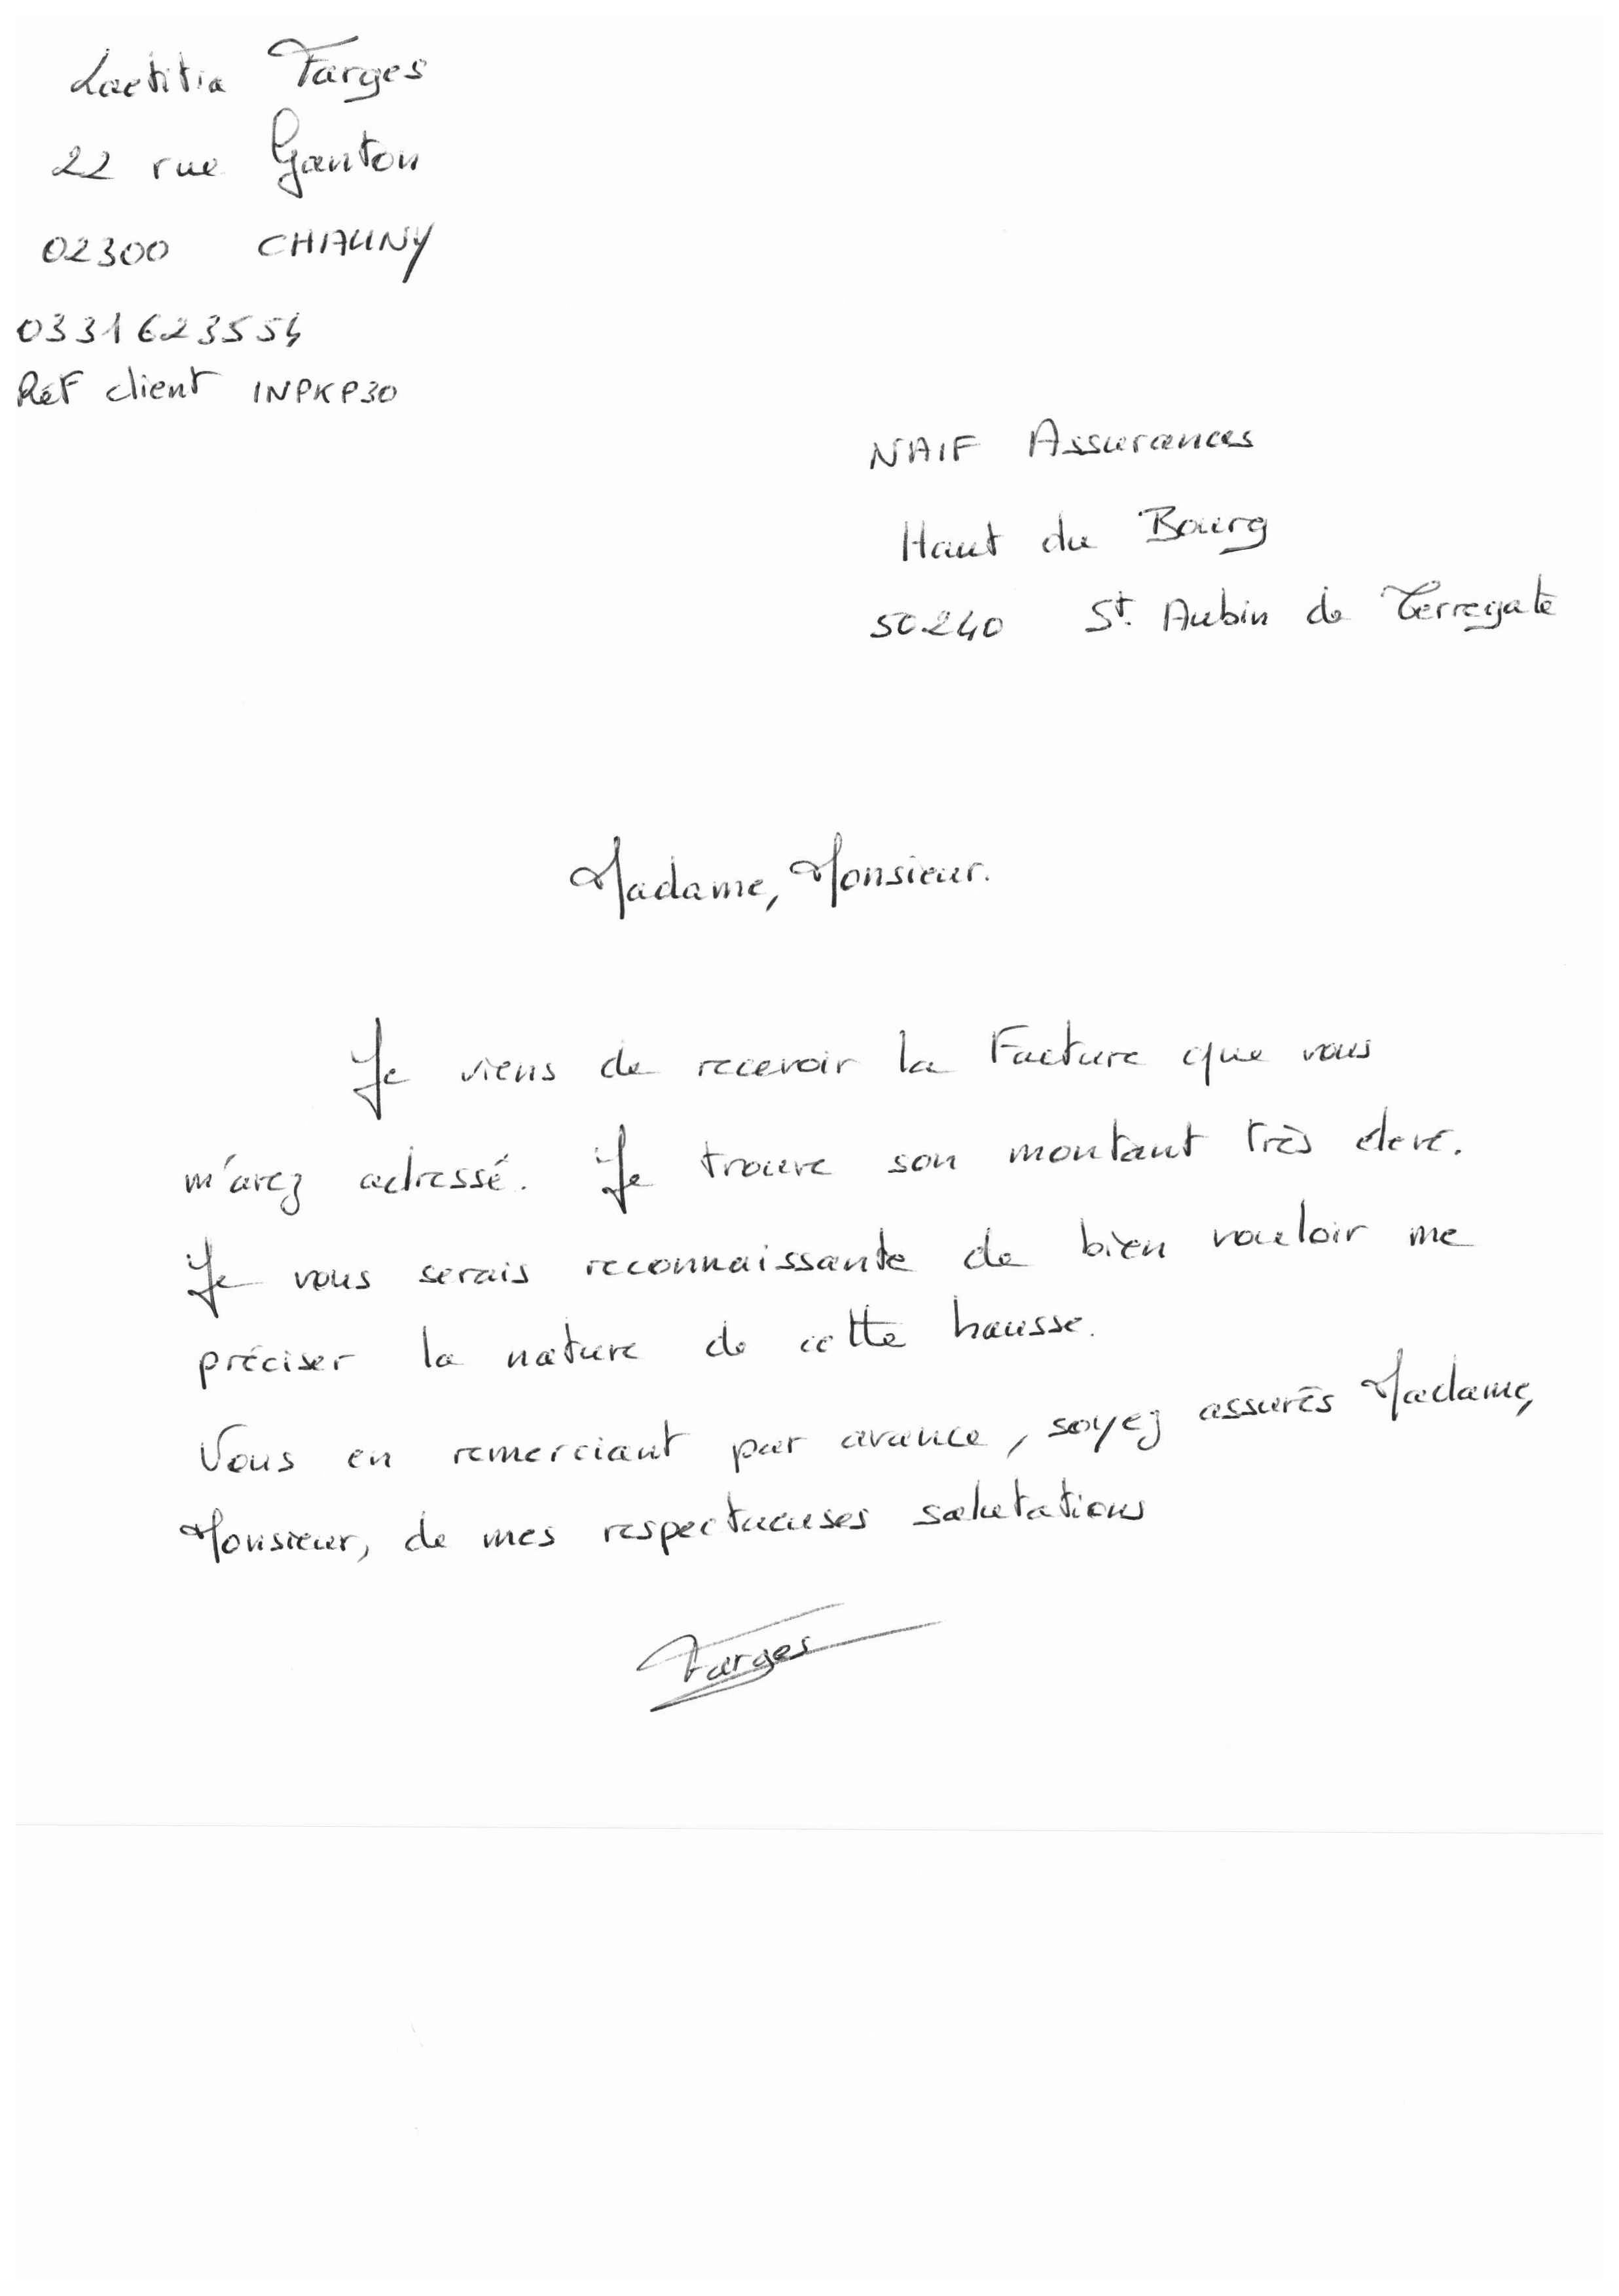 Laetitia Farges
22 rue Ganton
02300 CHAUNY
0331623554
Réf client INPKP30
NAIF Assurances
Haut du Bourg
50240 St. Aubin de Terregate
Madame, Monsieur.
Je viens de recevoir la Facture que vous
m'avez adressé. Je trouve son montant très élevé.
Je vous serais reconnaissante de bien vouloir me
préciser la nature de cette hausse.
Vous en remerciant par avance, soyez assurés Madame,
Monsieur, de mes respectueuses salutations
Farges